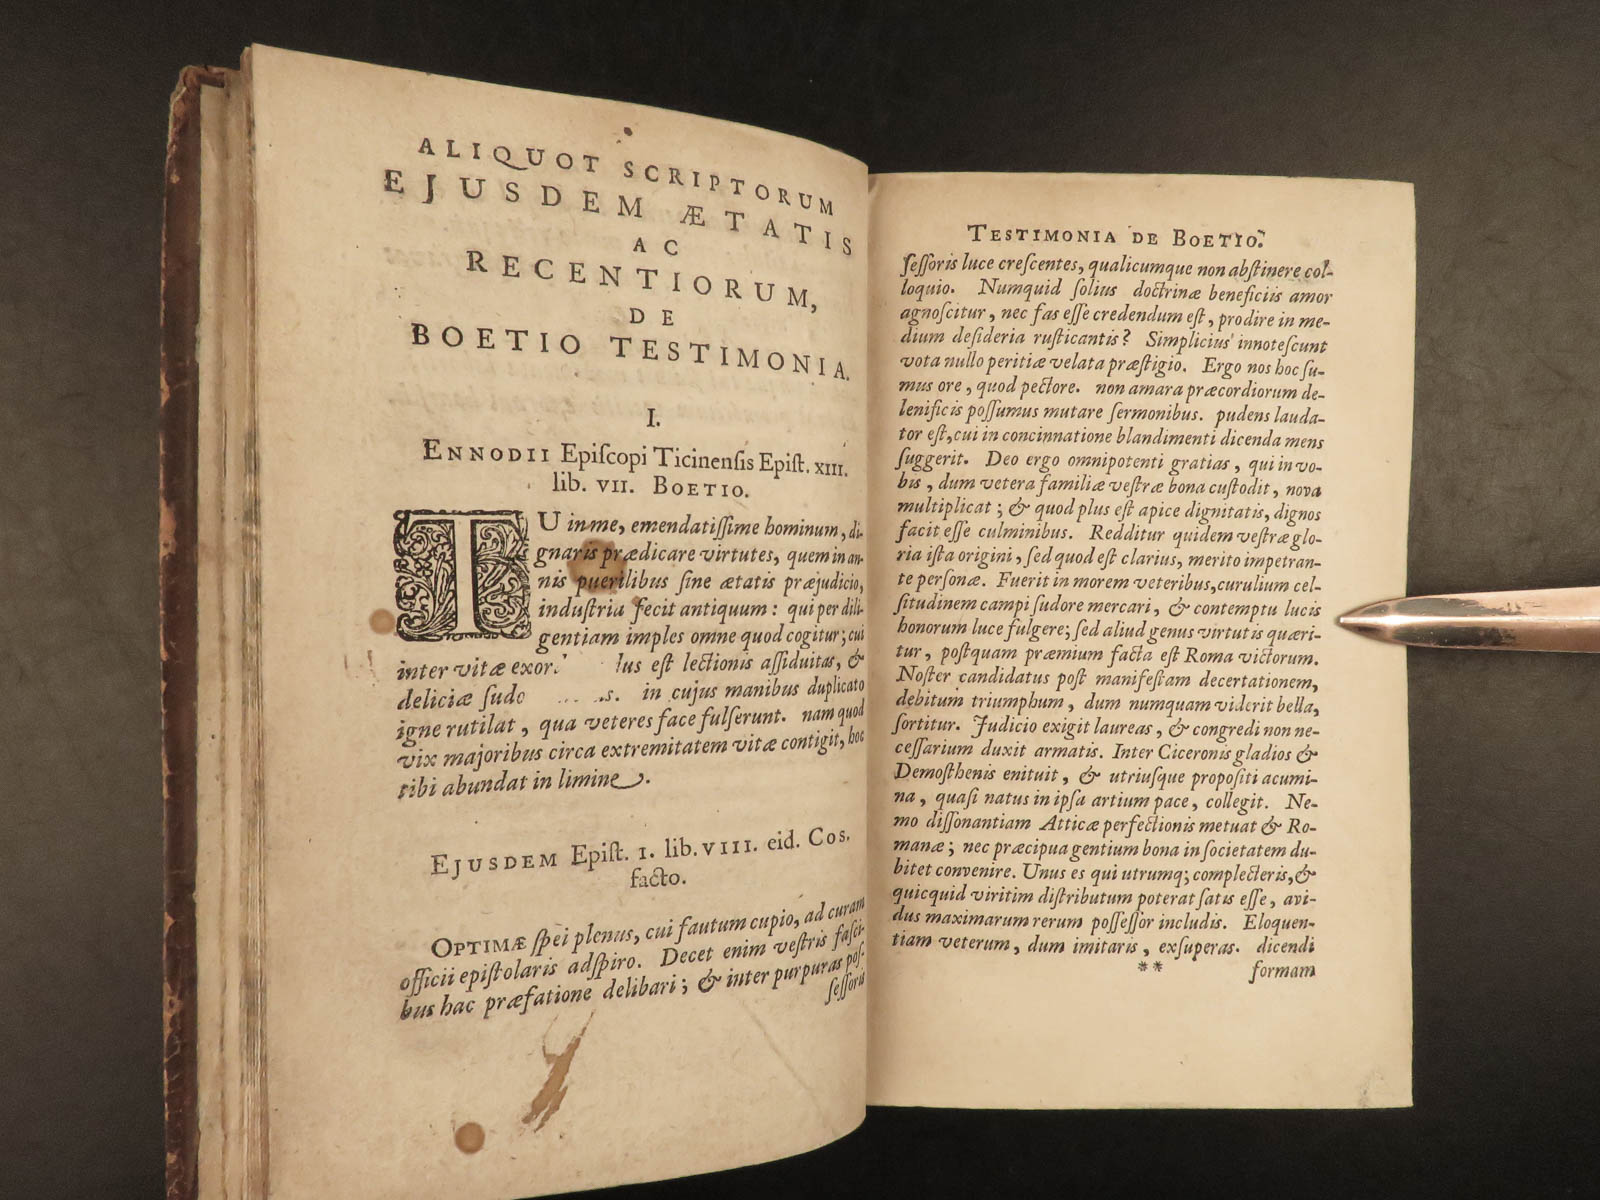 ALIQUOT SCRIPTORUM
EJUSDEM ÆTATIS
AC
RECENTIORUM,
DE
BOETIO TESTIMONIA.
I.
ENNODII Epiſcopi Ticinenſis Epiſt. XIII.
lib. VII. BOETIO.
TU in me, emendatiſſime hominum, di-
gnaris prædicare virtutes, quem in an-
nis puerilibus ſine ætatis præjudicio,
induſtria fecit antiquum: qui per dili-
gentiam imples omne quod cogitur; cui
inter vitæ exor lus eſt lectionis aſſiduitas, &
deliciæ ſudo s. in cujus manibus duplicato
igne rutilat, qua veteres face fulſerunt. nam quod
vix majoribus circa extremitatem vitæ contigit, hoc
tibi abundat in limine.
EJUSDEM Epiſt. I. lib. VIII. eid. Cos.
facto.
OPTIMÆ ſpei plenus, cui fautum cupio, ad curam
officii epiſtolaris adſpiro. Decet enim veſtris faſci-
bus hac præfatione delibari; & inter purpuras poſ-
ſeſſoris
TESTIMONIA DE BOETIO.
ſeſſoris luce creſcentes, qualicumque non abſtinere col-
loquio. Numquid ſolius doctrinæ beneficiis amor
agnoſcitur, nec fas eſſe credendum eſt, prodire in me-
dium deſideria ruſticantis? Simplicius innoteſcunt
vota nullo peritiæ velata præſtigio. Ergo nos hoc ſu-
mus ore, quod pectore. non amara præcordiorum de-
lenificis poſſumus mutare ſermonibus. pudens lauda-
tor eſt, cui in concinnatione blandimenti dicenda mens
ſuggerit. Deo ergo omnipotenti gratias, qui in vo-
bis, dum vetera familiæ veſtræ bona cuſtodit, nova
multiplicat; & quod plus eſt apice dignitatis, dignos
facit eſſe culminibus. Redditur quidem veſtræ glo-
ria iſta origini, ſed quod eſt clarius, merito impetran-
te perſonæ. Fuerit in morem veteribus, curulium cel-
ſitudinem campi ſudore mercari, & contemptu lucis
honorum luce fulgere; ſed aliud genus virtutis quæri-
tur, poſtquam præmium facta eſt Roma victorum.
Noſter candidatus poſt manifeſtam decertationem,
debitum triumphum, dum numquam viderit bella,
ſortitur. Judicio exigit laureas, & congredi non ne-
ceſſarium duxit armatis. Inter Ciceronis gladios &
Demoſthenis enituit, & utriuſque propoſiti acumi-
na, quaſi natus in ipſa artium pace, collegit. Ne-
mo diſſonantiam Atticæ perfectionis metuat & Ro-
manæ; nec præcipua gentium bona in ſocietatem du-
bitet convenire. Unus es qui utrumq; complecteris, &
quicquid viritim diſtributum poterat ſatis eſſe, avi-
dus maximarum rerum poſſeſſor includis. Eloquen-
tiam veterum, dum imitaris, exſuperas. dicendi
** formam